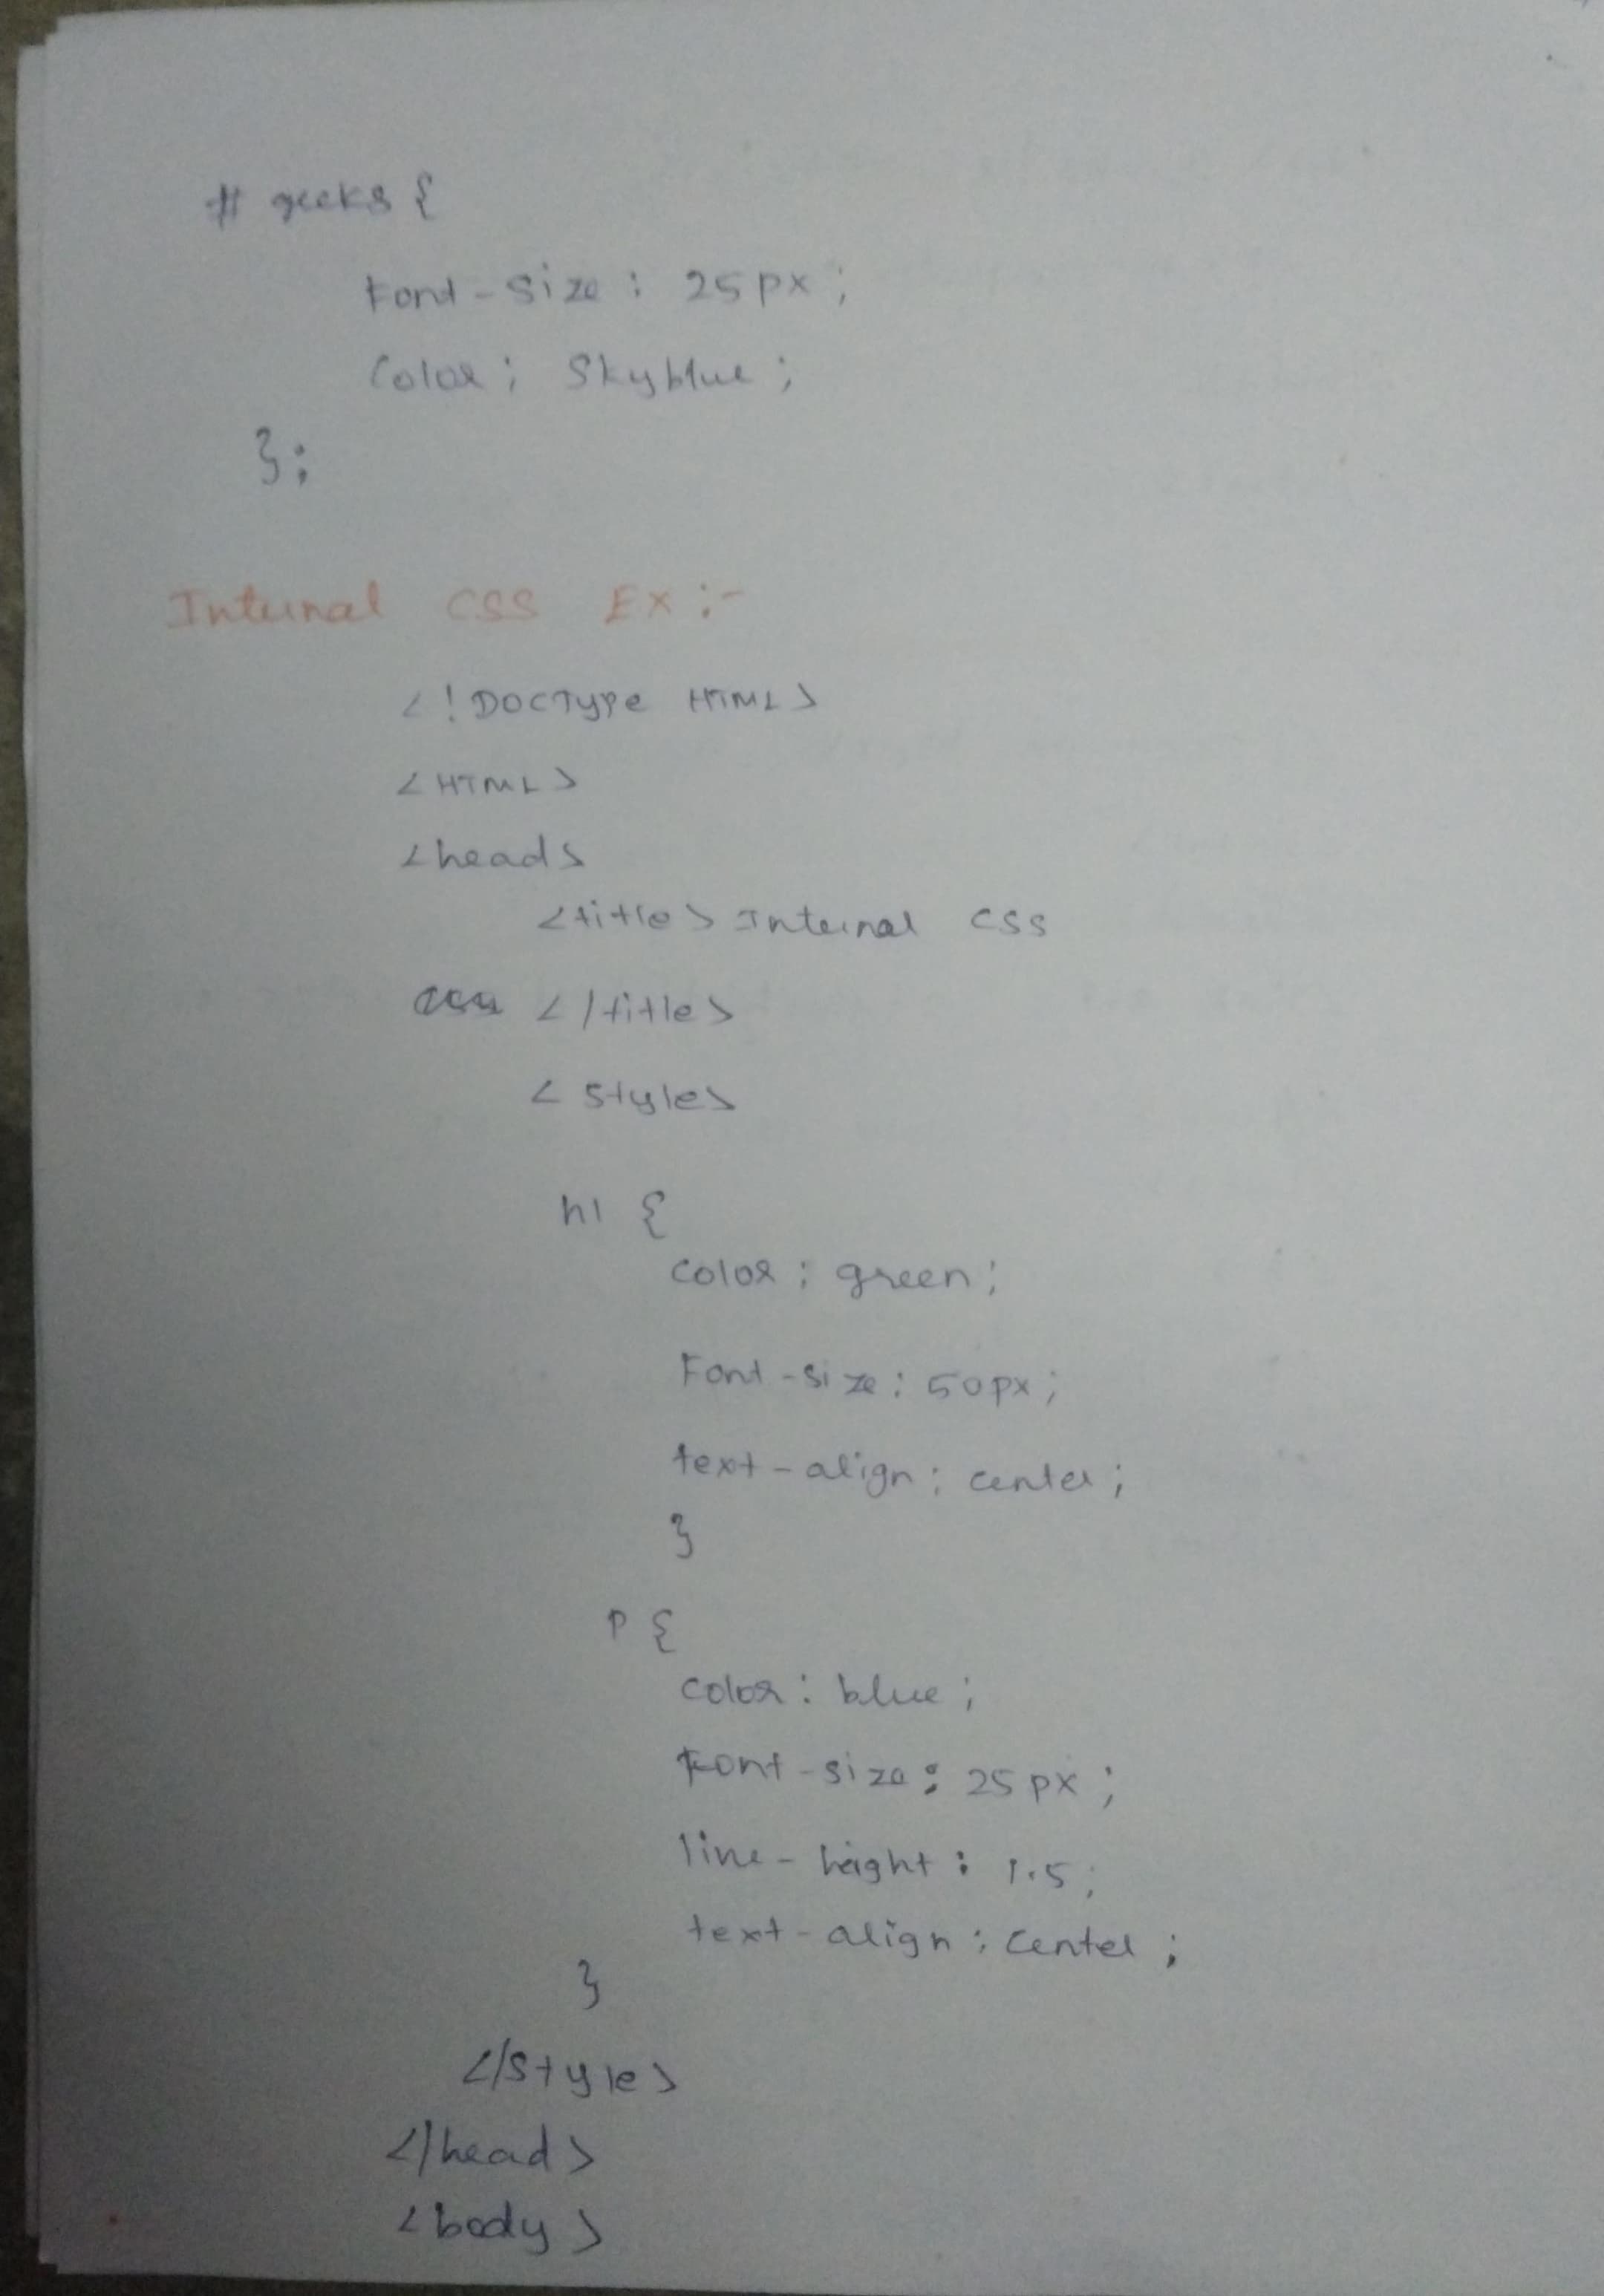 # geeks {
Font-size : 25px ;
Color : Skyblue ;
} ;
Internal CSS Ex :-
<!DOCType HTML>
<HTML>
<head>
<title> Internal CSS
</title>
<style>
h1 {
color : green ;
Font-size : 50px ;
text-align : center ;
}
P {
color : blue ;
Font-size : 25px ;
line-height : 1.5 ;
text-align : center ;
}
</style>
</head>
<body>